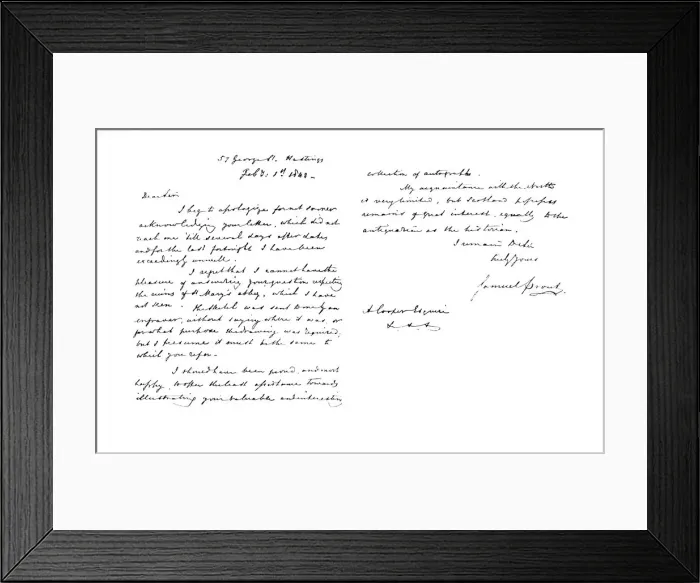 57 George St. Hastings
Feby. 1st. 1843 -
Dear Sir
I beg to apologize for not sooner
acknowledging your letter, which did not
reach me till several days after date,
and for the last fortnight I have been
exceedingly unwell.
I regret that I cannot have the
pleasure of answering your question respecting
the ruins of St. Mary's abbey, which I have
not seen. The sketch was sent to me by an
engraver, without saying where it was, or
for what purpose the drawing was required,
but I presume it must be the same to
which you refer.
I should have been proud, and most
happy, to offer the least assistance towards
illustrating your valuable and interesting
collection of autographs.
My acquaintance with the North
is very limited, but Scotland possesses
remains of great interest, equally to the
antiquarian as the historian.
I remain Dr Sir
truly yours
Samuel Prout.
A Cooper Esquire